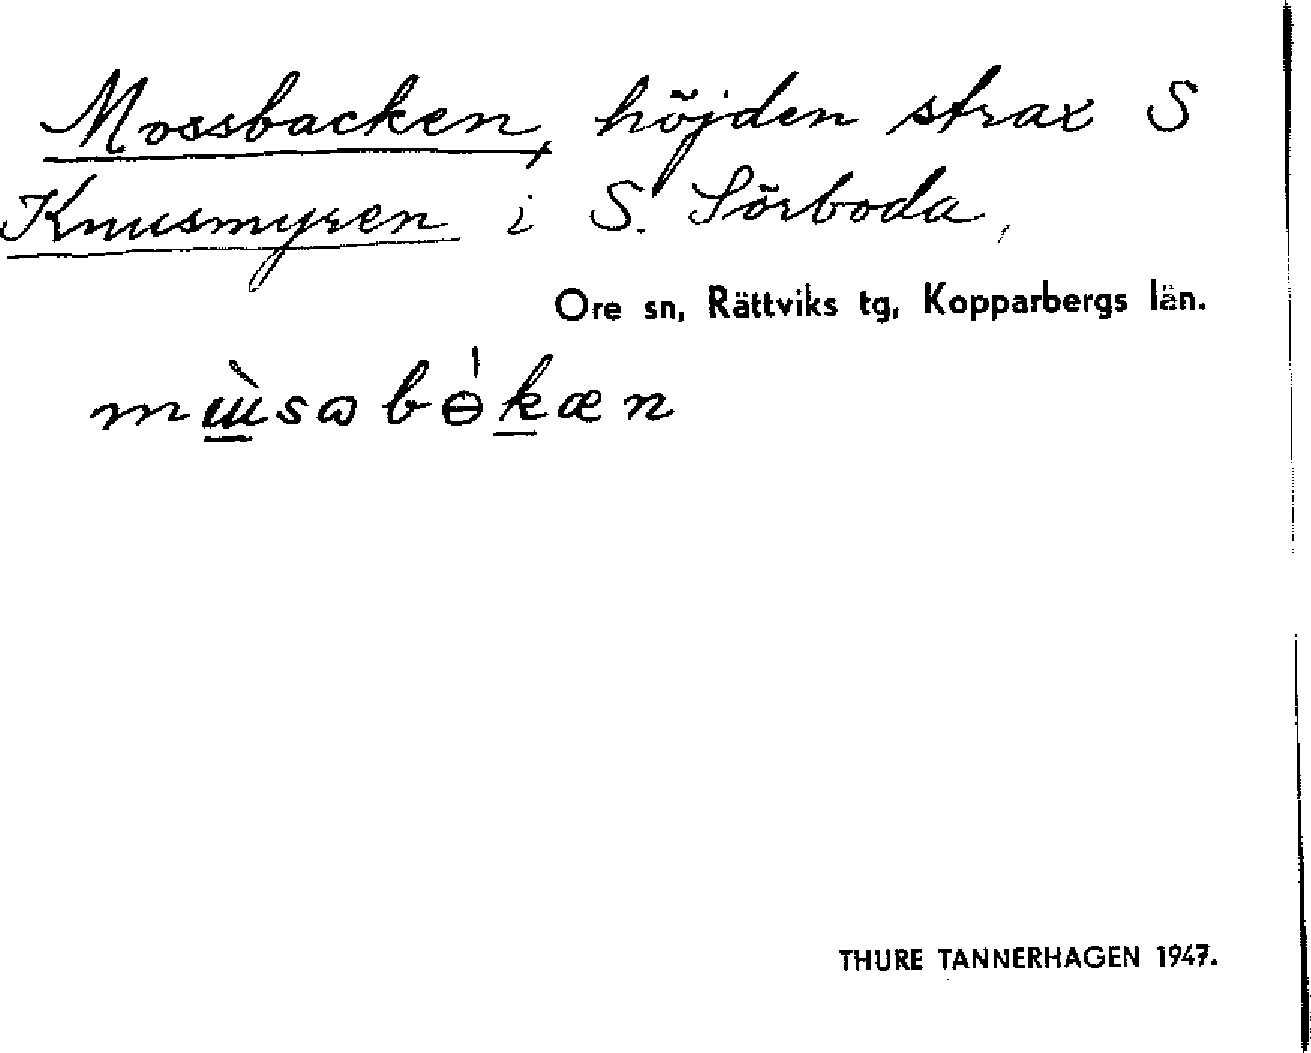 Mossbacken, höjden strax S
Knusmyren i S. Sörboda,
Ore sn, Rättviks tg, Kopparbergs län.
THURE TANNERHAGEN 1947.